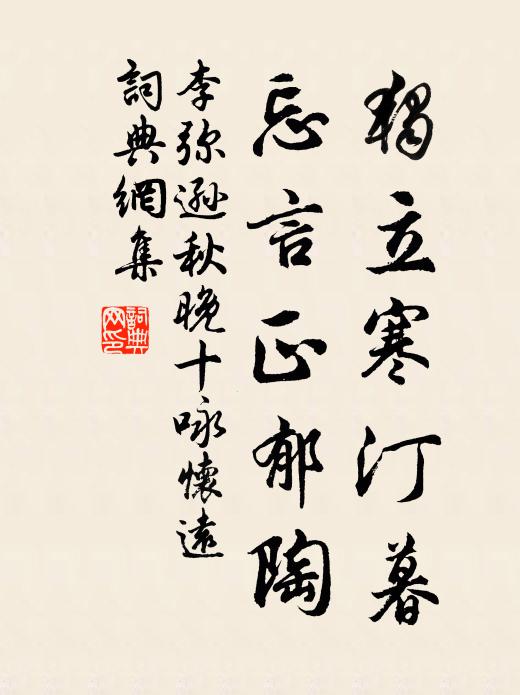 獨立寒汀暮
忘言正郁陶
李弥遜秋晚十咏懷遠
詞典網集
詞典网印